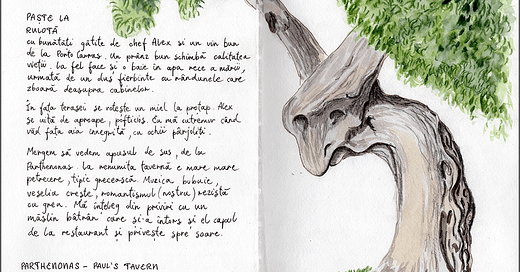 PAȘTE LA
RULOTĂ
cu bunătăți gătite de chef Alex și un vin bun
de la Porto Carras. Un prânz bun schimbă calitatea
vieții. La fel face și o baie în apa rece a mării,
urmată de un duș fierbinte cu rândunele care
zboară deasupra cabinelor.
În fața terasei se rotește un miel la proțap. Alex
se uită de aproape, pofticios. Eu mă cutremur când
văd fața aia înnegrită, cu ochii pârjoliți.
Mergem să vedem apusul de sus, de la
Parthenonas. La renumita tavernă e mare mare
petrecere, tipic grecească. Muzica bubuie,
veselia crește, romantismul (nostru) rezistă
cu greu. Mă înțeleg din priviri cu un
măslin bătrân care și-a întors și el capul
de la restaurant și privește spre soare.
PARTHENONAS - PAUL'S TAVERN